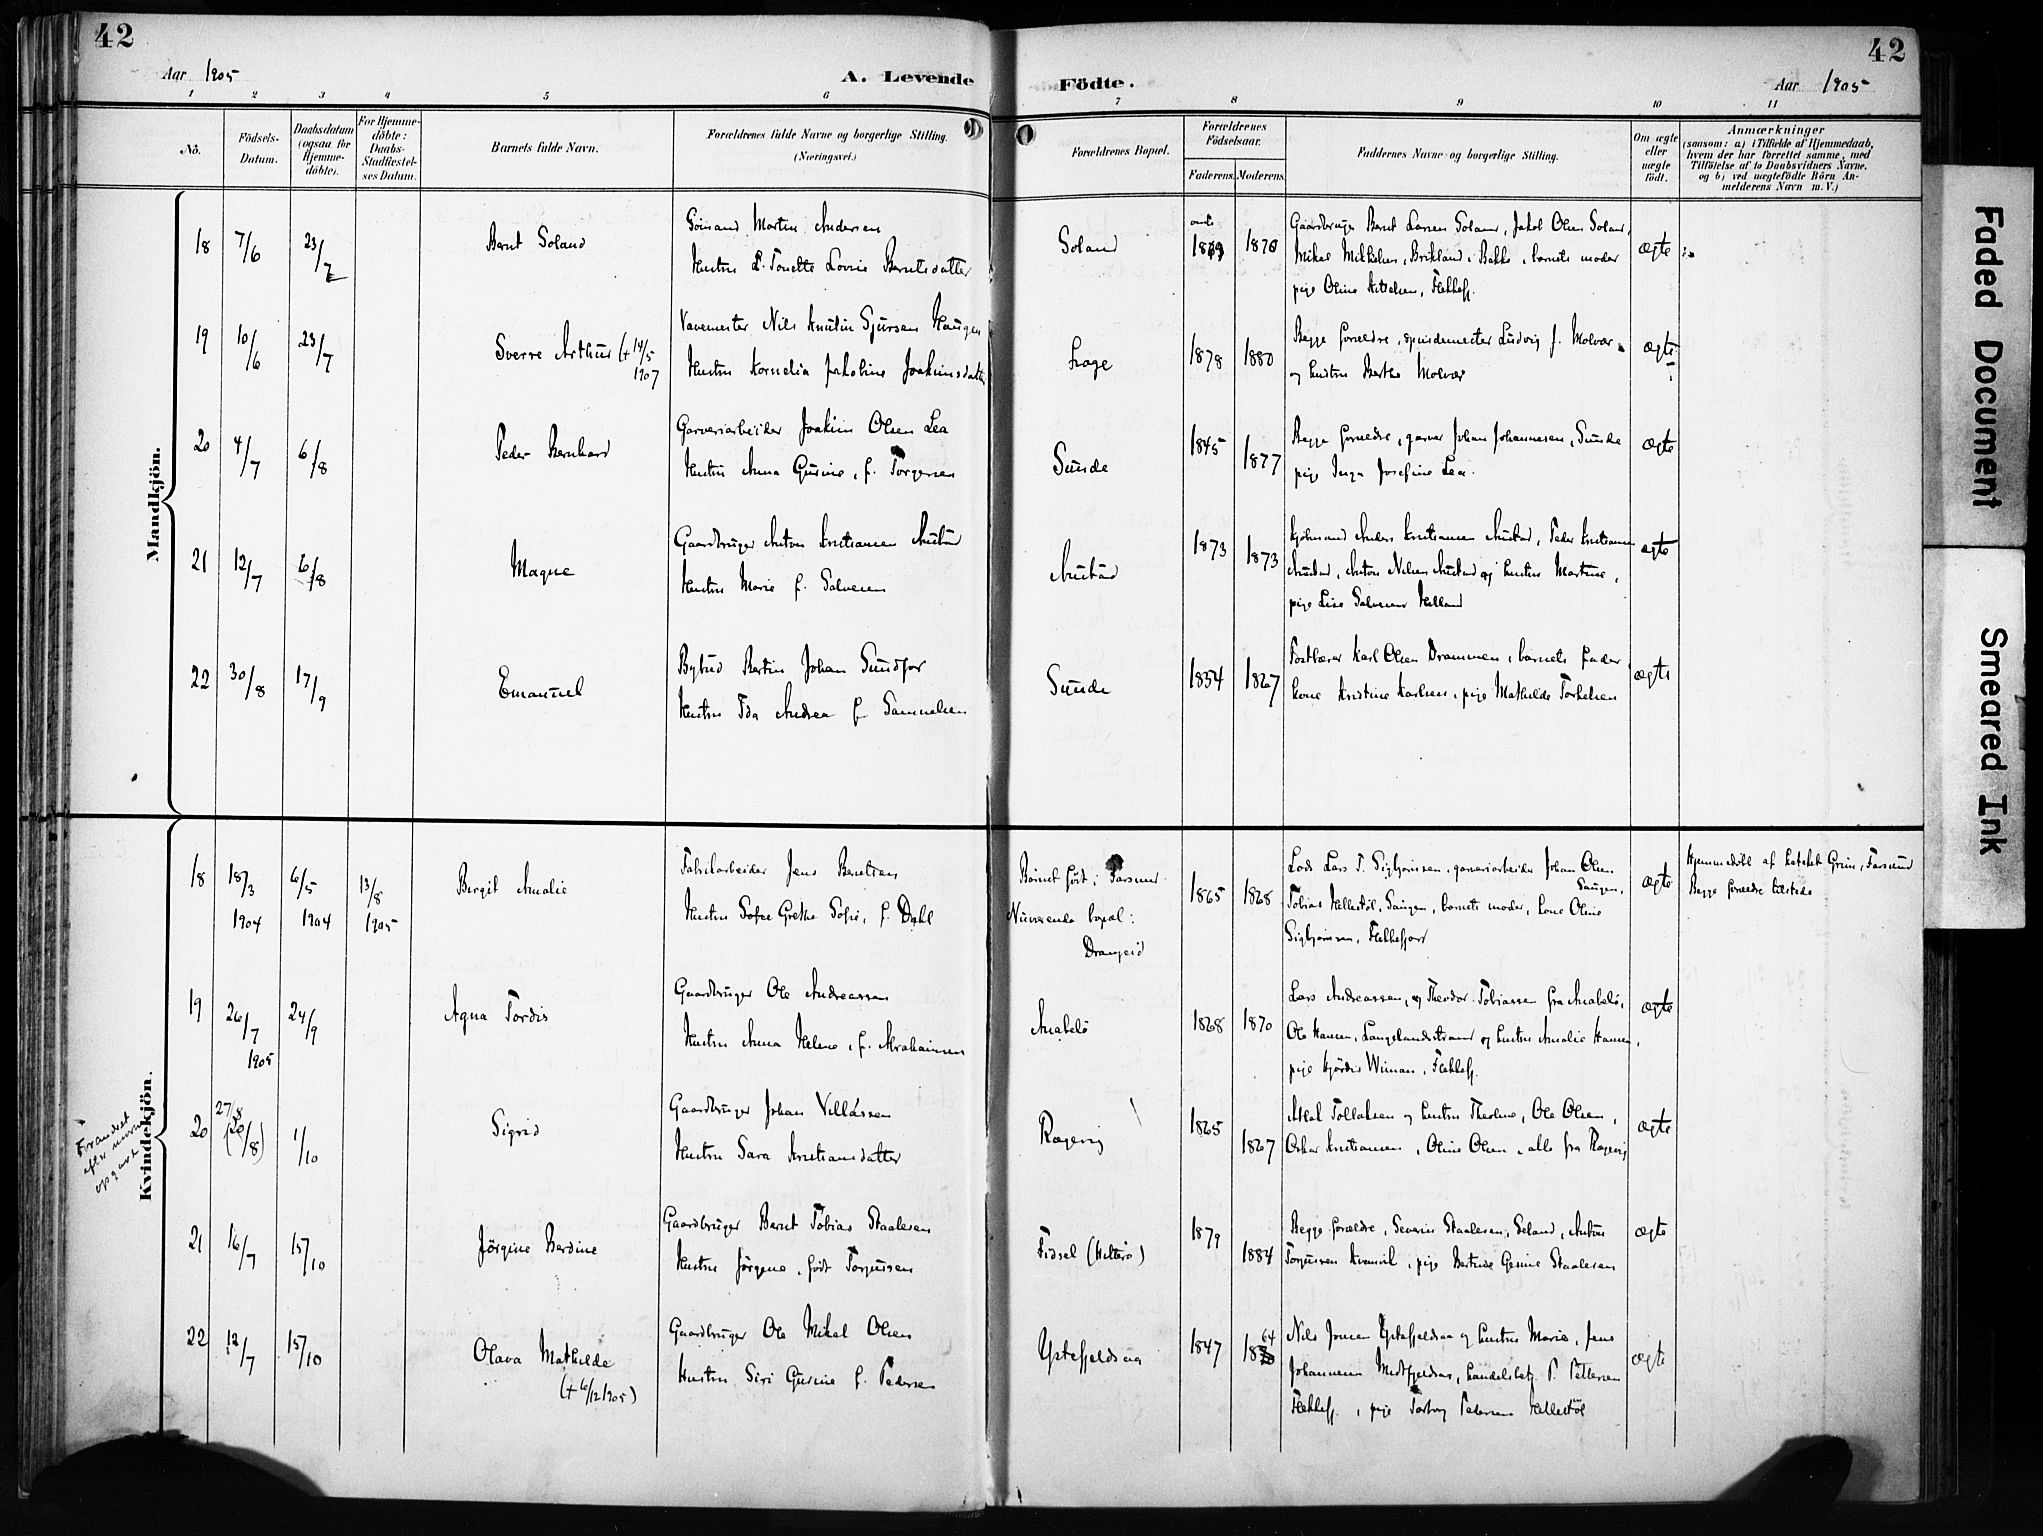 42
42
Aar 1905
A. Levende
Födte.
Aar 1905
1 2 3 4 5 6 7 8 9 10 11
No.
Födsels-
Datum.
Daabsdatum
(ogsaa for
Hjemme-
döbte).
For Hjemme-
döbte:
Daabs-
Stadfæstel-
ses Datum.
Barnets fulde Navn.
Forældrenes fulde Navne og borgerlige Stilling.
(Næringsvei.)
Forældrenes Bopæl.
Forældrenes
Födselsaar.
Faderens. Moderens.
Faddernes Navne og borgerlige Stilling.
Om ægte
eller
uægte
födt.
Anmærkninger
(saasom: a) i Tilfælde af Hjemmedaab,
hvem der har forrettet samme, med
Tilföielse af to Daabsvidners Navne,
og b) ved uægtefödte Börn An-
melderens Navn m. V.)
Mandkjön.
18 7/6 23/7 Bernt Soland
Sömand Martin Andersen
Hustru Tonette Lovise Berntsdatter
Soland
1870
Gaardbruger Bernt Larsen Soland, Jakob Olsen Soland,
Mikal Mikkelsen, Birkland, Bakke, barnets moder
pige Oline Flekkefj.
ægte
19 10/6 23/7 Sverre Arthur (+ 14/5
1907
Vævemester Nils Knutin Sjursen Haugen
Hustru Kornelia Jakobine Joakimsdatter
1878 1880
Begge forældre, spindemester Ludvig J. Molvær
og hustru Berthe Molvær
ægte
20 4/7 6/8 Peder Bernhard
Garveriarbeider Joakim Olsen Lea
Hustru Anna Gurine, f. Torgersen
Sunde
1845 1877
Begge forældre, garver Johan Johannesen, Sunde
pige Inga Josefine Lea.
ægte
21 12/7 6/8 Magne
Gaardbruger Anton Kristiansen Austad
Hustru Marie f. Salvesen
Austad
1873 1873
Kjöbmand Anders Kristiansen Austad, Peder Kristiansen
Austad, Anton Nilsen Austad og hustru Martine,
pige Lise Salvesen Helland
ægte
22 30/8 17/9 Emanuel
Bybud Bertin Johan Sundfor
Hustru Ida Andrea f. Samuelsen
Sunde
1854 1867
Postbærer Karl Olsen Drammen, barnets fader,
kone Kristine Karlsen, pige Mathilde Torkelsen
ægte
Kvindekjön.
18 18/3
1904
6/5
1904
13/8
1905
Birgit Amalie
Fabrikarbeider Jens Berntsen
Hustru Sofie Grethe Sofie, f. Dahl
Barnet födt i Farsund
Nuværende bopæl:
Drangeid
1865 1868
Lods Lars T. Sigbjörnsen, garveriarbeider Johan Olsen
Saugen,
Tobias Hellestöl, Saugen, barnets moder, kone Oline
Sigbjörnsen, Flekkefjord
ægte
Hjemmedöbt af kateket Grim, Farsund
Begge forældre tilstede
19 26/7
1905
24/9
Agna Tordis
Gaardbruger Ole Andreassen
Hustru Anna Helene, f. Abrahamsen
Anabelö
1868 1870
Lars Andreassen, og Theodor Tobiassen fra Anabelö,
Ole Hansen, Langelandsstrand og hustru Amalie Hansen,
pige Hjördis Wiman, Flekkefj.
ægte
Forandret
efter
opgave
20 27/8
(20/8)
1/10
Sigrid
Gaardbruger Johan Villassen
Hustru Sara Kristiansdatter
Rægevig
1865 1867
Aksel Tollaksen og hustru Theoline, Ole Olsen,
Oskar Kristiansen, Oline Olsen, alle fra Rægevig
ægte
21 16/7 15/10 Jörgine Berdine
Gaardbruger Bernt Tobias Staalesen
Hustru Jörgene, födt Torjussen
Fidsel (Hitterö)
1879 1884
Begge forældre, Severin Staalesen, Seland, Anton
Torjussen Kvanvik, pige Bertine Gesine Staalesen
ægte
22 12/7 15/10 Olava Mathilde
(+ 6/12 1905)
Gaardbruger Ole Mikal Olsen
Hustru Siri Gurine f. Pedersen
Ystefjeldsaa
1847 64
Nils Jonsen Ystefjeldsaa og hustru Marie, Jens
Johannesen Midtfjeldsaa, handelsbetj. P. Pettersen
Flekkefj., pige Torborg Pedersen Hellestöl
ægte
Faded Document
Smeared Ink